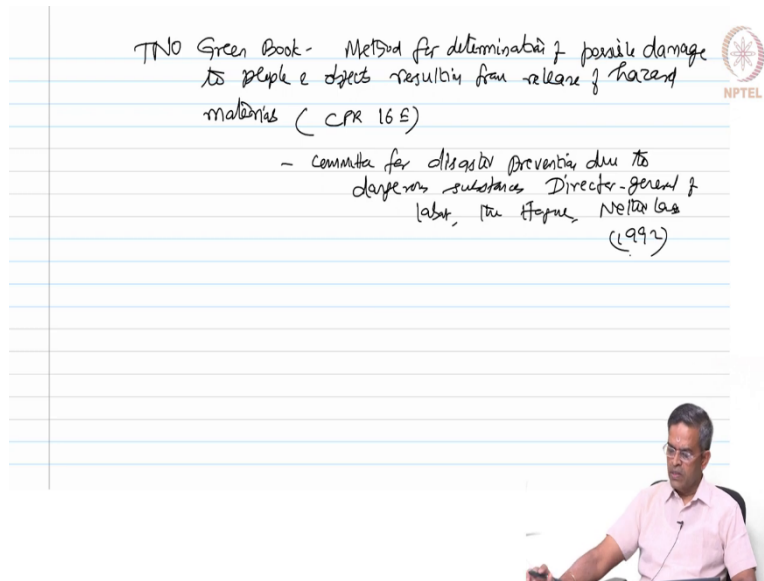 TNO Green Book - Method for determination of possible damage
to people & objects resulting from release of hazard
materials ( CPR 16 E )
- Committee for disaster prevention due to
dangerous substances Director-general of
labor, The Hague, Netherlands
(1992)
NPTEL